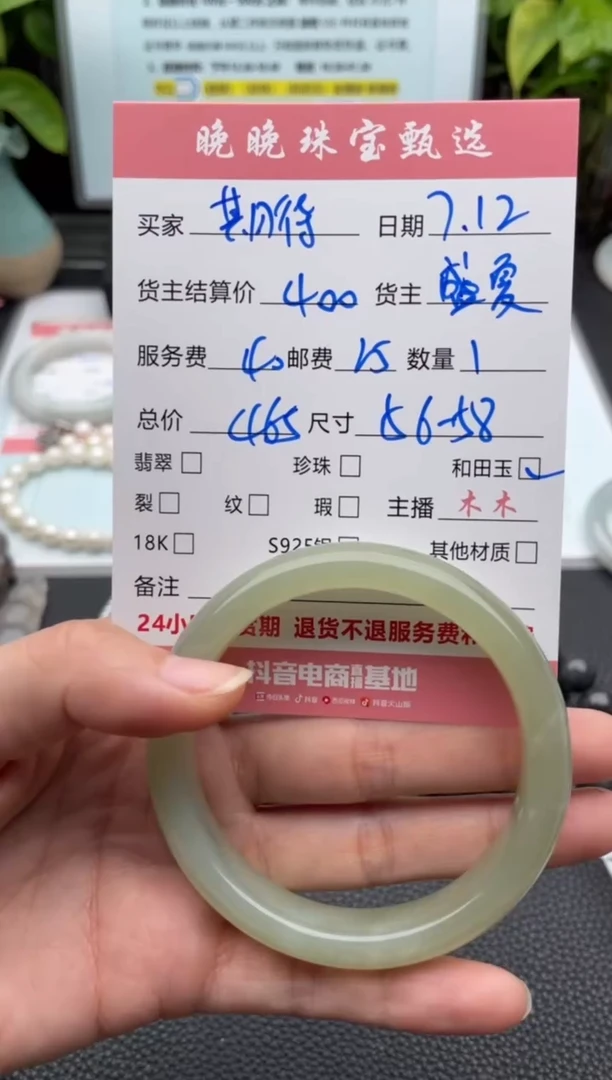 晚晚珠宝甄选
买家 期待 日期 7.12
货主结算价 400 货主 盛夏
服务费 40 邮费 15 数量 1
总价 465 尺寸 56-58
翡翠 珍珠 和田玉
裂 纹 瑕 主播 木木
18K S925银 其他材质
备注
24小 货期 退货不退服务费和
抖音电商直播基地
抖音
抖音火山版